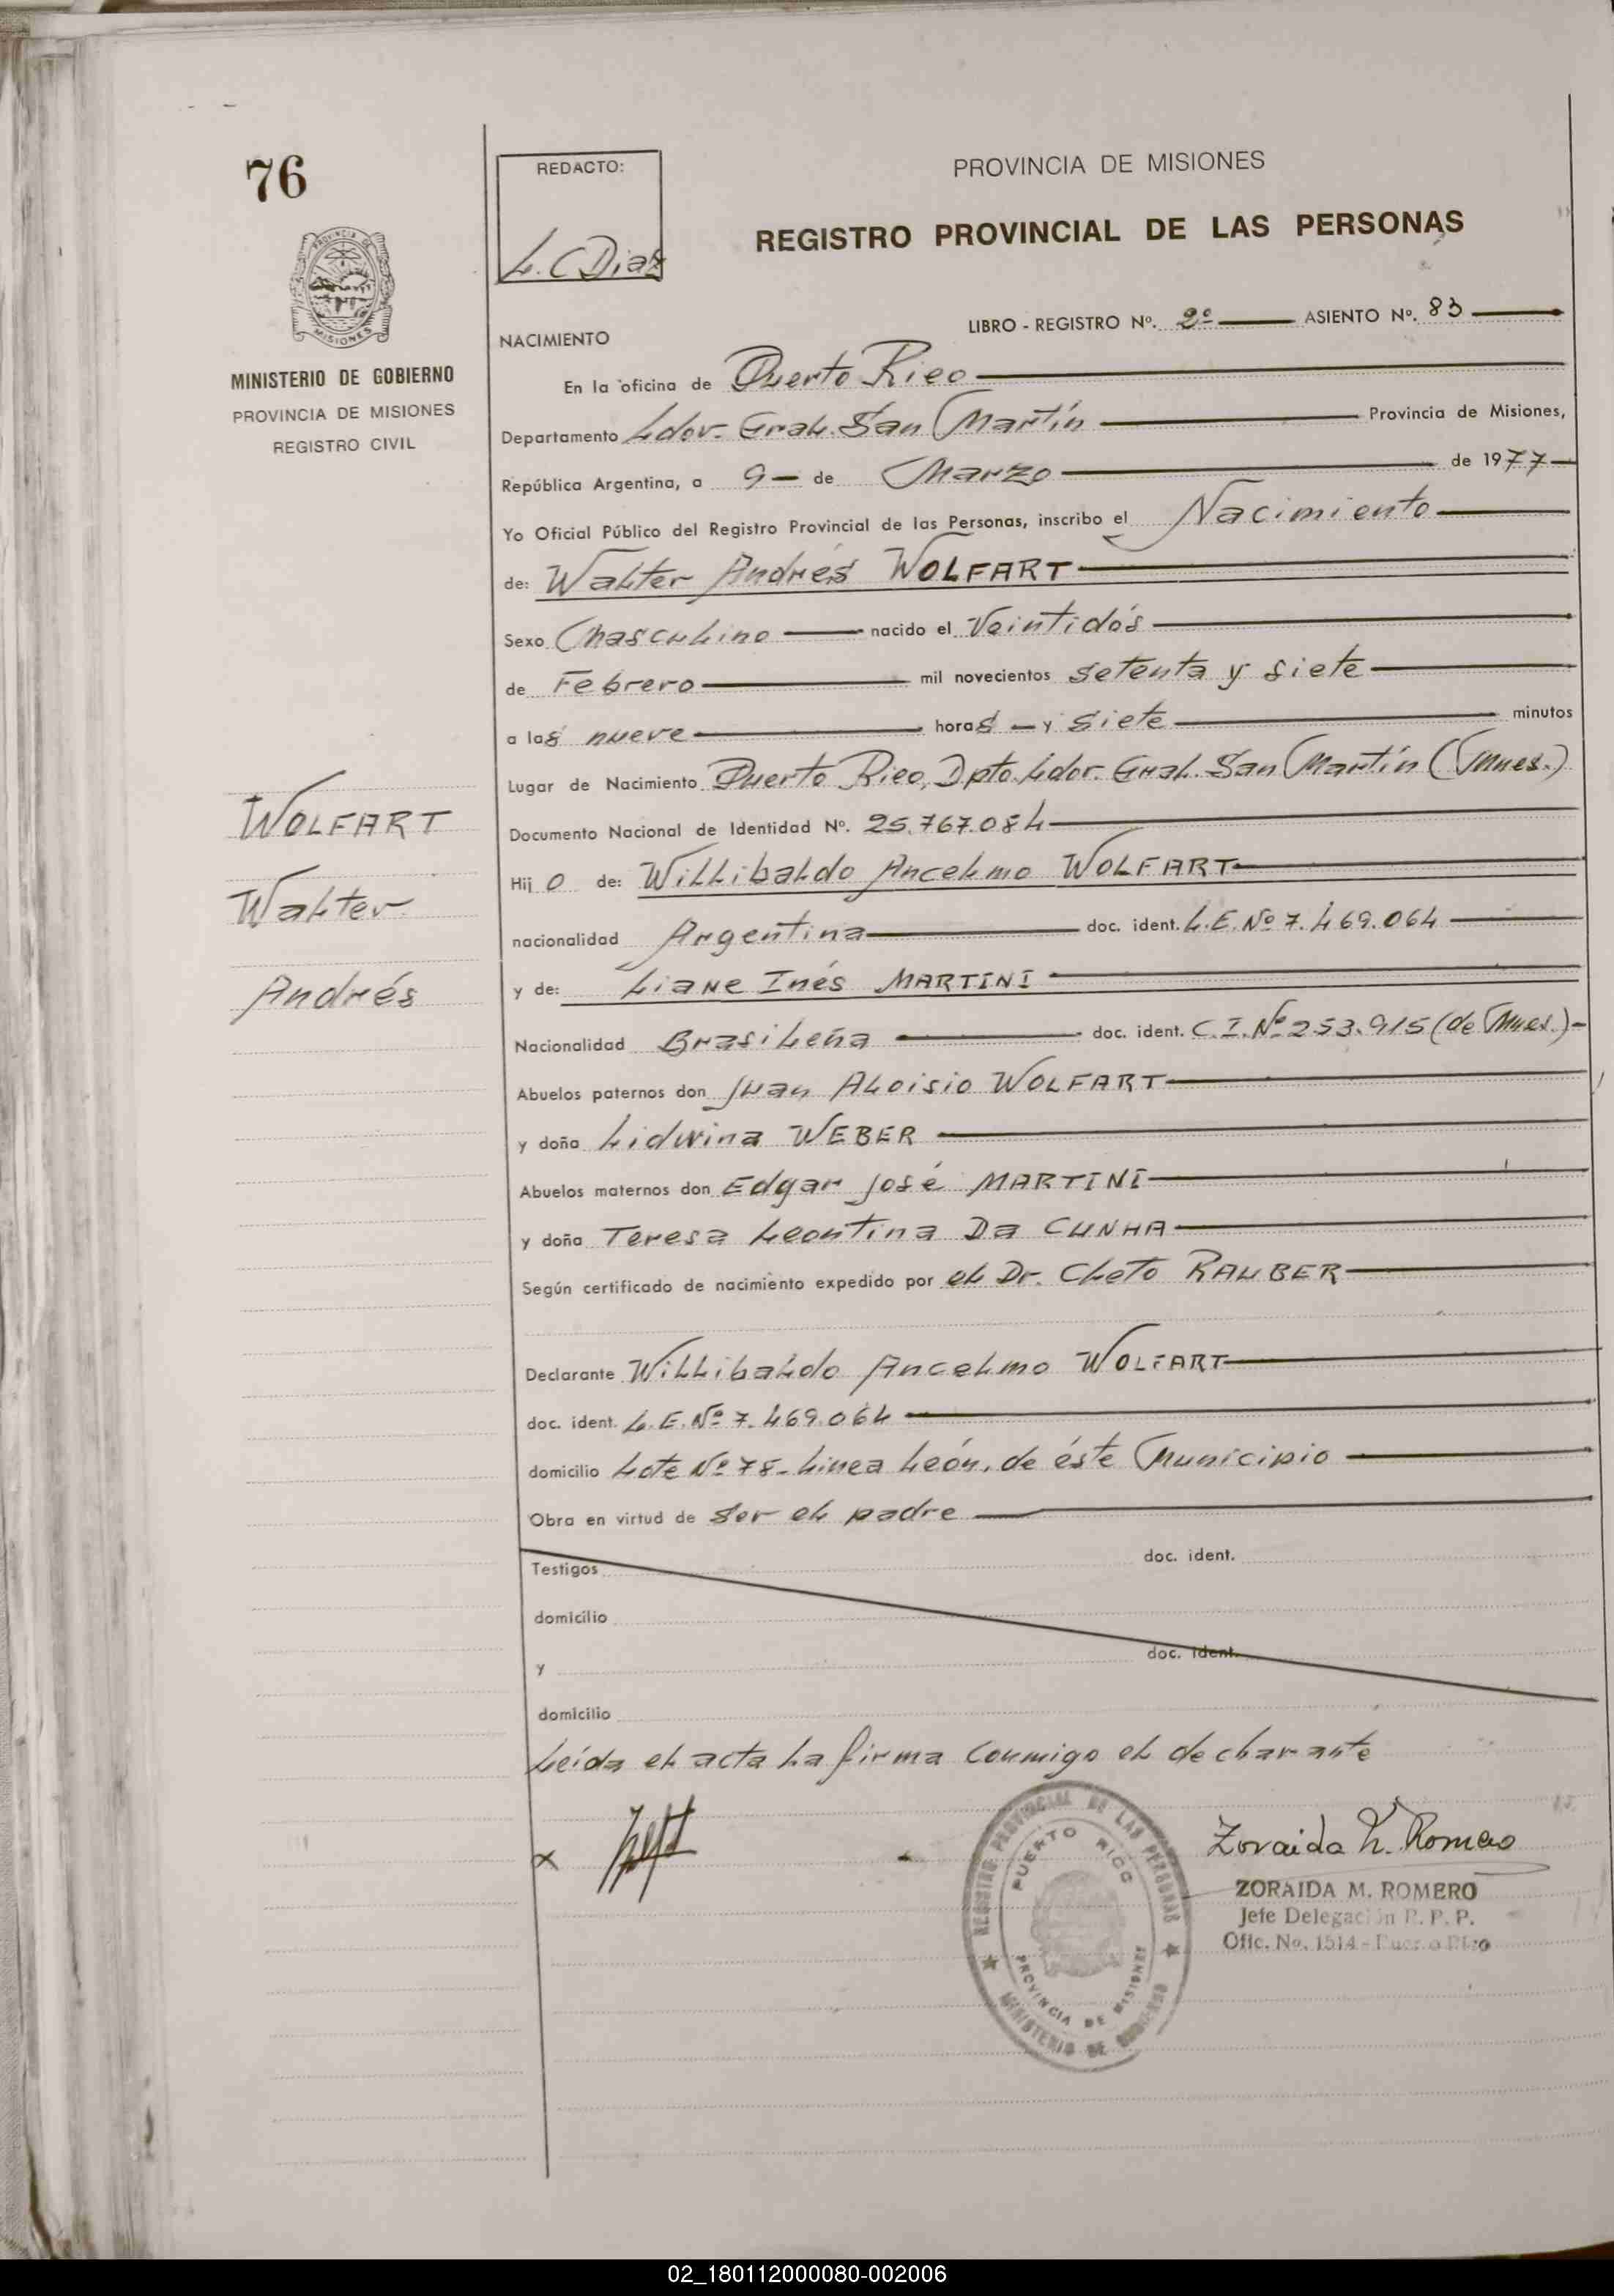 76
PROVINCIA DE MISIONES
MINISTERIO DE GOBIERNO
PROVINCIA DE MISIONES
REGISTRO CIVIL
WOLFART
Walter
Andrés
REDACTO:
L. C Diaz
PROVINCIA DE MISIONES
REGISTRO PROVINCIAL DE LAS PERSONAS
LIBRO - REGISTRO Nº. 2º ASIENTO Nº. 83
NACIMIENTO
En la oficina de Puerto Rico
Departamento Ldor. Gral. San Martín Provincia de Misiones,
República Argentina, a 9 de Marzo de 1977
Yo Oficial Público del Registro Provincial de las Personas, inscribo el Nacimiento
de: Walter Andrés WOLFART
Sexo Masculino nacido el Veintidós
de Febrero mil novecientos setenta y siete
a las nueve horas y siete minutos
Lugar de Nacimiento Puerto Rico, Dpto. Ldor. Gral. San Martín (Mnes.)
Documento Nacional de Identidad Nº. 25.767.084
Hijo de: Willibaldo Ancelmo WOLFART
nacionalidad Argentina doc. ident. L.E. Nº 7.469.064
y de: Liane Inés MARTINI
Nacionalidad Brasileña doc. ident. C.I. Nº 253.915 (de Mnes.)-
Abuelos paternos don Juan Aloisio WOLFART
y doña Lidwina WEBER
Abuelos maternos don Edgar José MARTINI
y doña Teresa Leontina Da CUNHA
Según certificado de nacimiento expedido por el Dr. Cleto RAUBER
Declarante Willibaldo Ancelmo WOLFART
doc. ident. L.E. Nº 7.469.064
domicilio Lote Nº 78- Linea León, de éste Municipio
Obra en virtud de ser el padre
Testigos doc. ident.
domicilio
y doc. ident.
domicilio
Leída el acta la firma conmigo el declarante
x
REGISTRO PROVINCIAL DE LAS PERSONAS
PUERTO RICO
PROVINCIA DE MISIONES
MINISTERIO DE GOBIERNO
Zoraida M. Romero
ZORAIDA M. ROMERO
Jefe Delegación R. P. P.
Ofic. No. 1514 - Puerto Rico
02_180112000080-002006